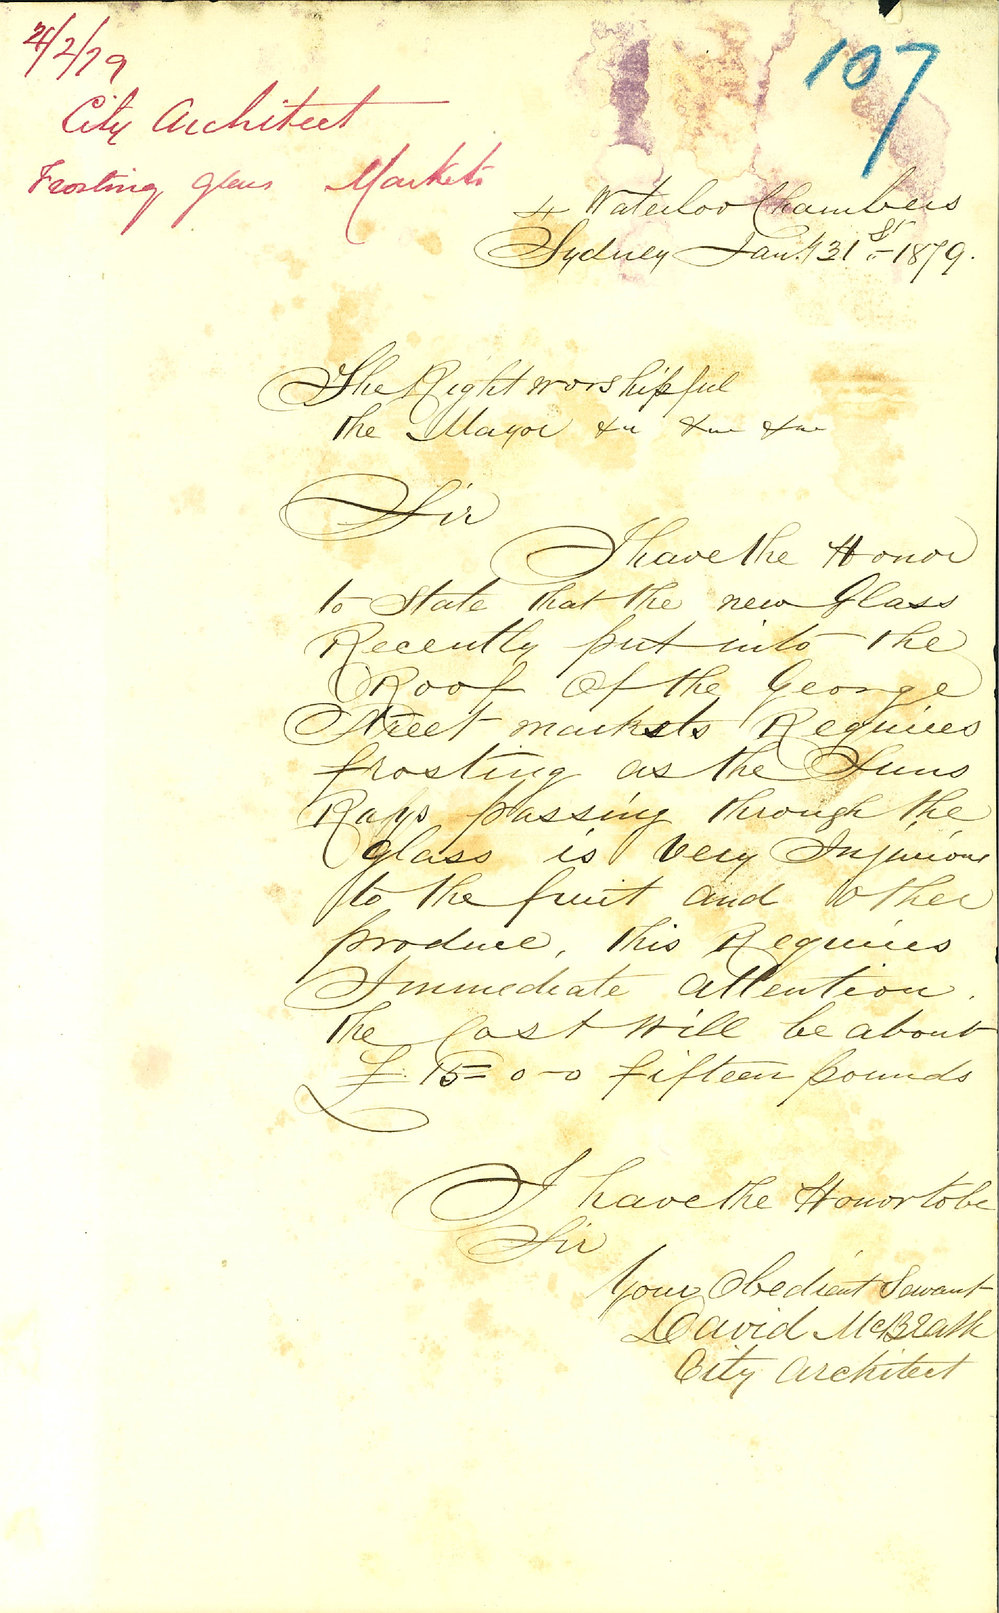 4/2/79
107
City Architect
Frosting glass Markets
4 Waterloo Chambers
Sydney Jany 31st - 1879.
The Right worshipful
the Mayor &c &c &c
Sir
I have the Honor
to State that the new Glass
Recently put into the
Roof Of the George
Street markets Requires
frosting as the Suns
Rays passing through the
glass is very Injurious
to the fruit and Other
produce, this Requires
Immediate Attention.
the Cost Will be about
£ 15 = 0 - 0 fifteen pounds
I have the Honor to be
Sir
Your Obedient Servant
David McBeath
City Architect